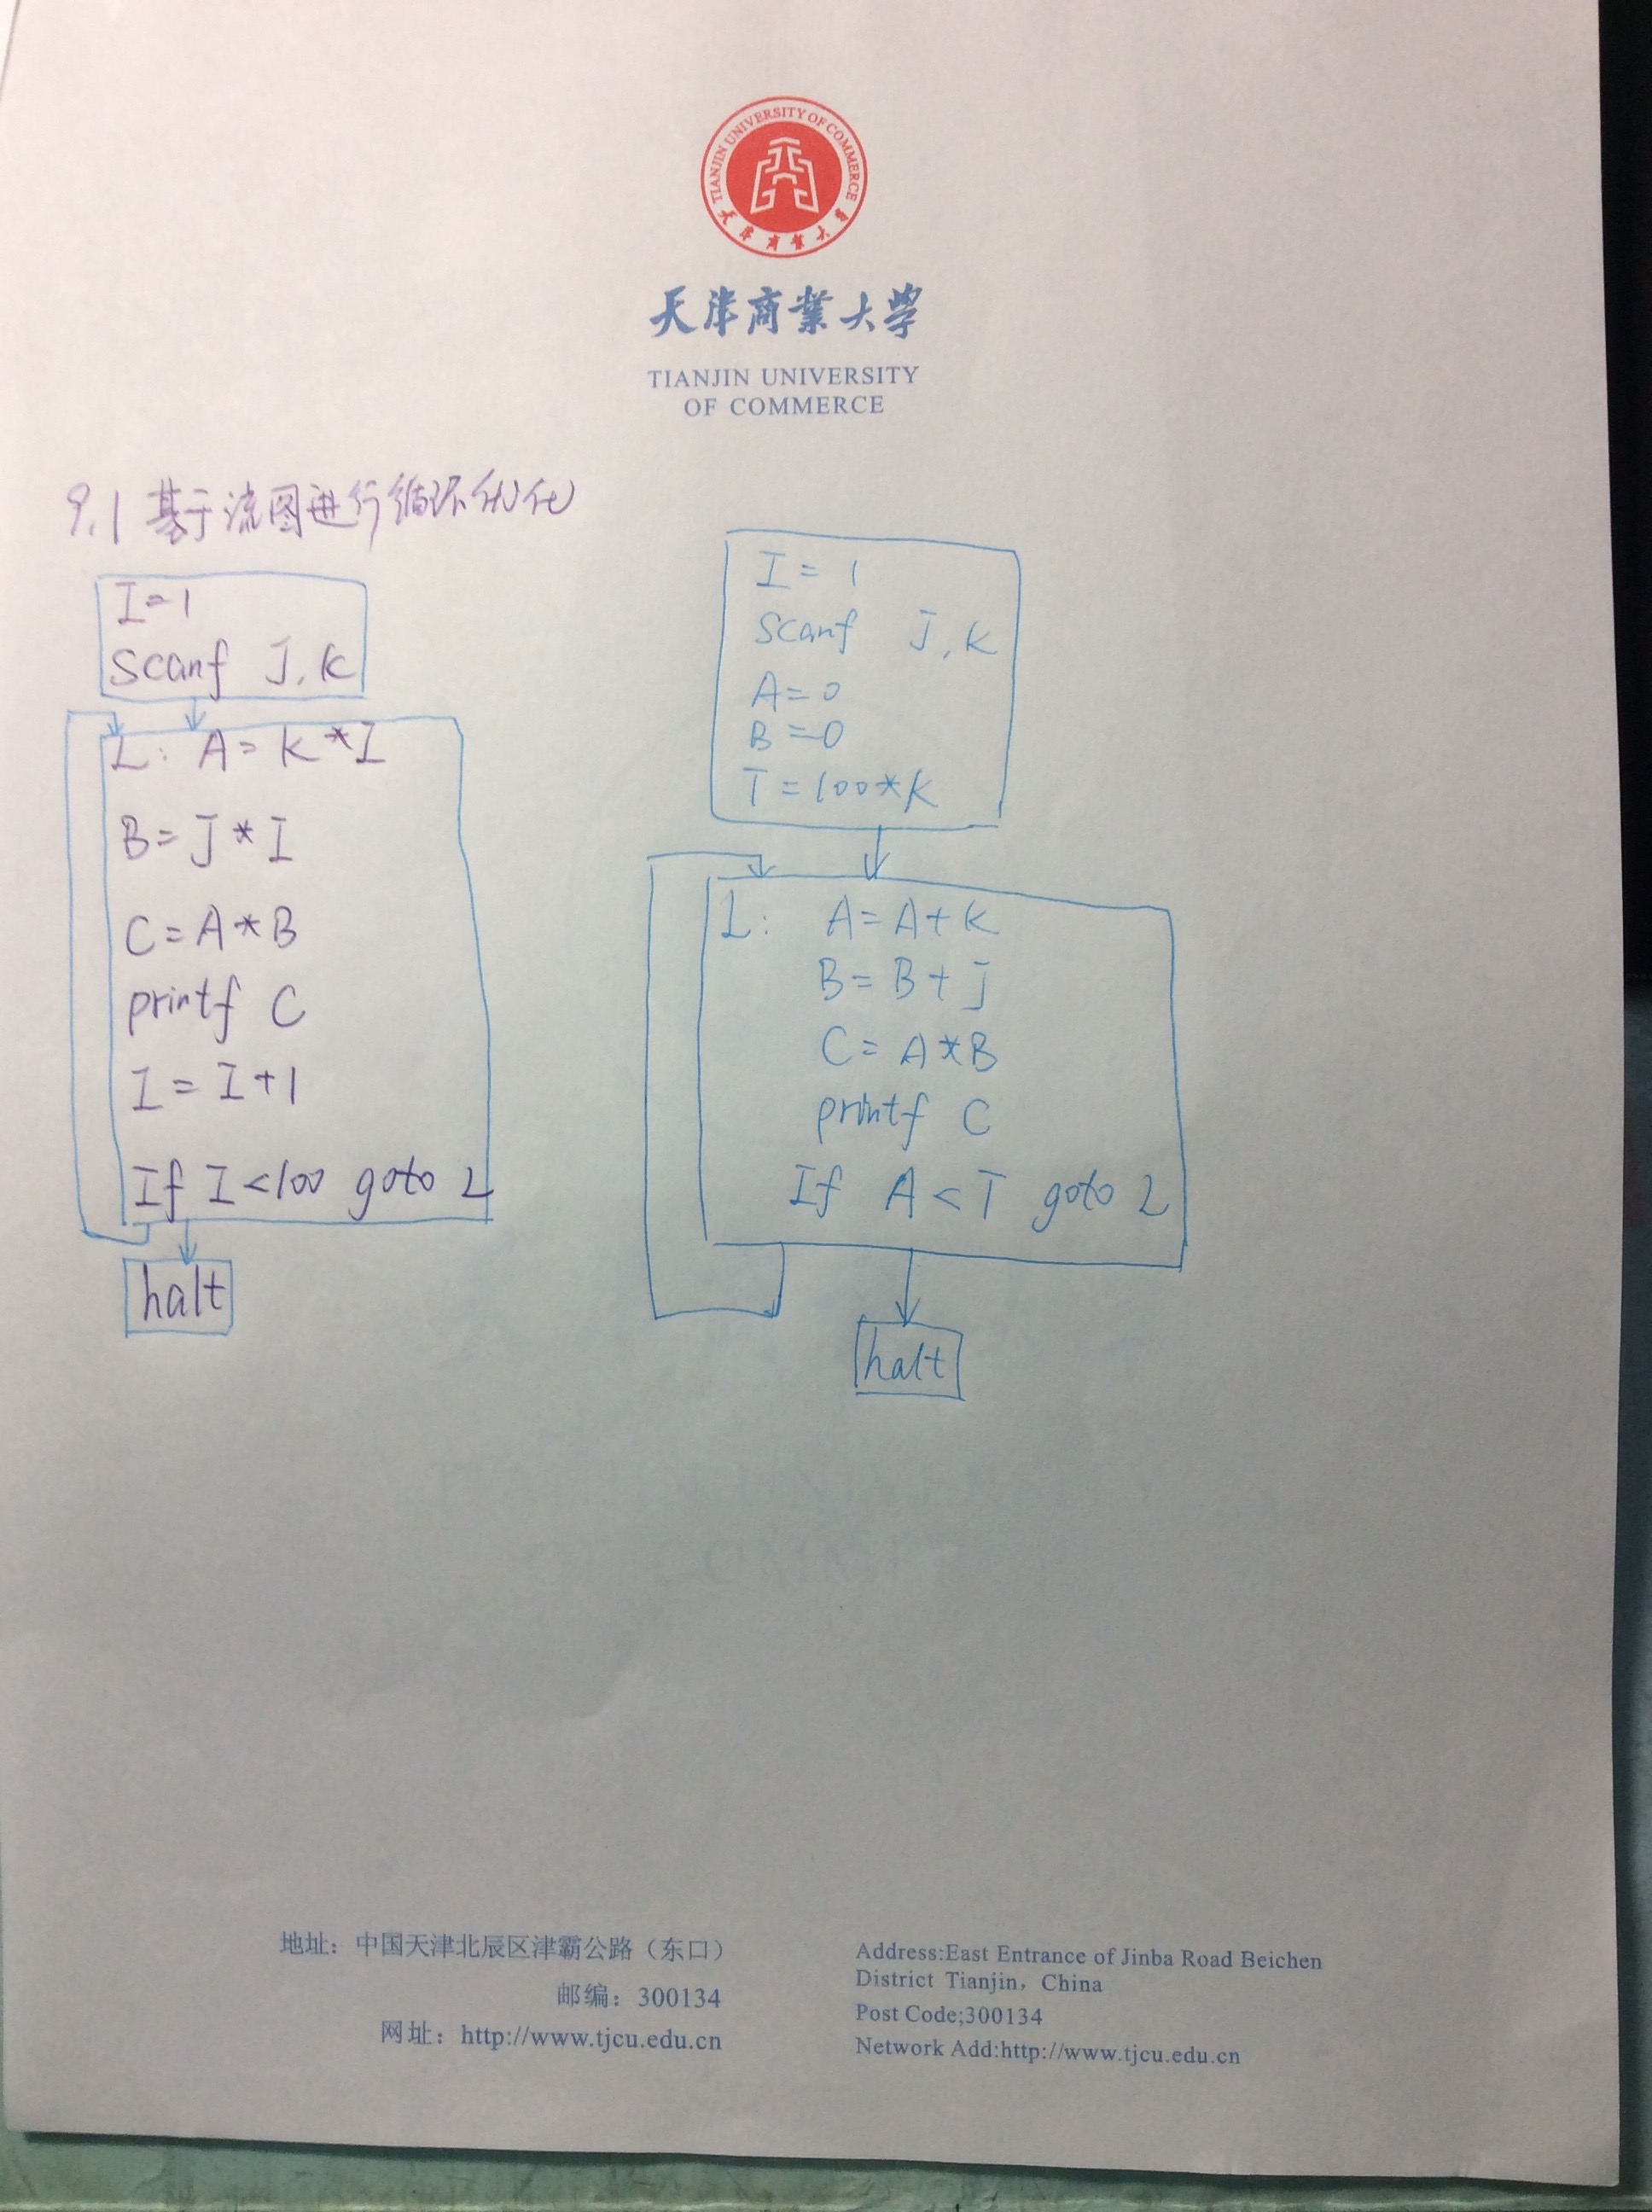 TIANJIN UNIVERSITY OF COMMERCE
天津商業大学
天津商業大学
TIANJIN UNIVERSITY
OF COMMERCE
9.1 基于流图进行循环优化
I=1
Scanf J,K
L: A=K*I
B=J*I
C=A*B
printf C
I=I+1
If I<100 goto L
halt
I=1
Scanf J,K
A=0
B=0
T=100*K
L: A=A+K
B=B+J
C=A*B
printf C
If A<T goto L
halt
地址：中国天津北辰区津霸公路（东口）
邮编：300134
网址：http://www.tjcu.edu.cn
Address:East Entrance of Jinba Road Beichen
District Tianjin，China
Post Code;300134
Network Add:http://www.tjcu.edu.cn